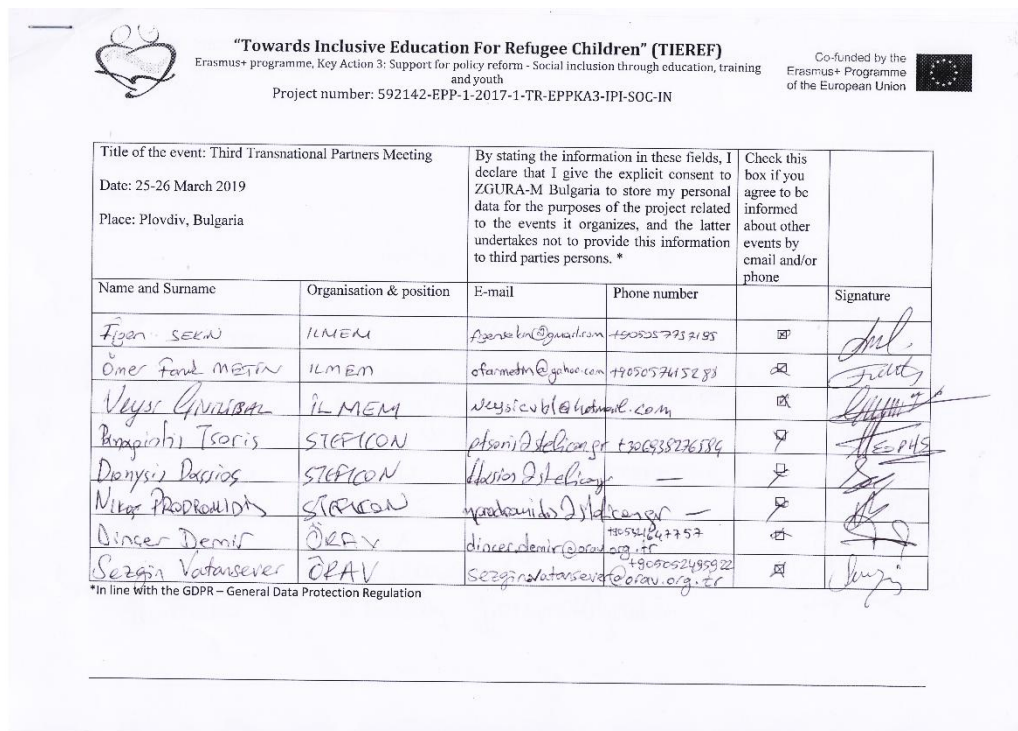 "Towards Inclusive Education For Refugee Children" (TIEREF)
Erasmus+ programme, Key Action 3: Support for policy reform - Social inclusion through education, training
and youth
Project number: 592142-EPP-1-2017-1-TR-EPPKA3-IPI-SOC-IN
Co-funded by the
Erasmus+ Programme
of the European Union
Title of the event: Third Transnational Partners Meeting
Date: 25-26 March 2019
Place: Plovdiv, Bulgaria
By stating the information in these fields, I
declare that I give the explicit consent to
ZGURA-M Bulgaria to store my personal
data for the purposes of the project related
to the events it organizes, and the latter
undertakes not to provide this information
to third parties persons. *
Check this
box if you
agree to be
informed
about other
events by
email and/or
phone
Name and Surname Organisation & position E-mail Phone number Signature
Figen SEKİN ILMEM +905057757195
Ömer Faruk METİN ILMEM ofarmetin@yahoo.com +905057615283
Veysi İLMEM veysicvbl@hotmail.com
Tsoris STEFICON +306938276584
Dionysis Dassios STEFICON —
Nikos PRODROMIDIS STEFICON —
Dinçer Demir ÖRAV dincer.demir@orav.org.tr
Sezgin Vatansever ÖRAV sezgin.vatansever@orav.org.tr +905052495922
*In line with the GDPR – General Data Protection Regulation